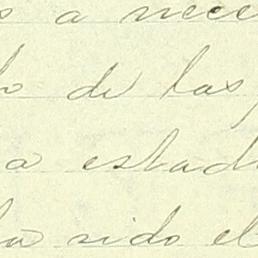 s a nece
lo de las
a estad
ha sido el